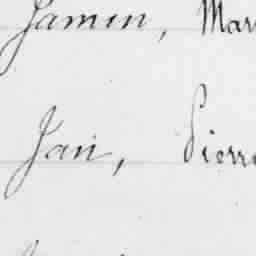 Jamin, Mar
Jan, Pierre